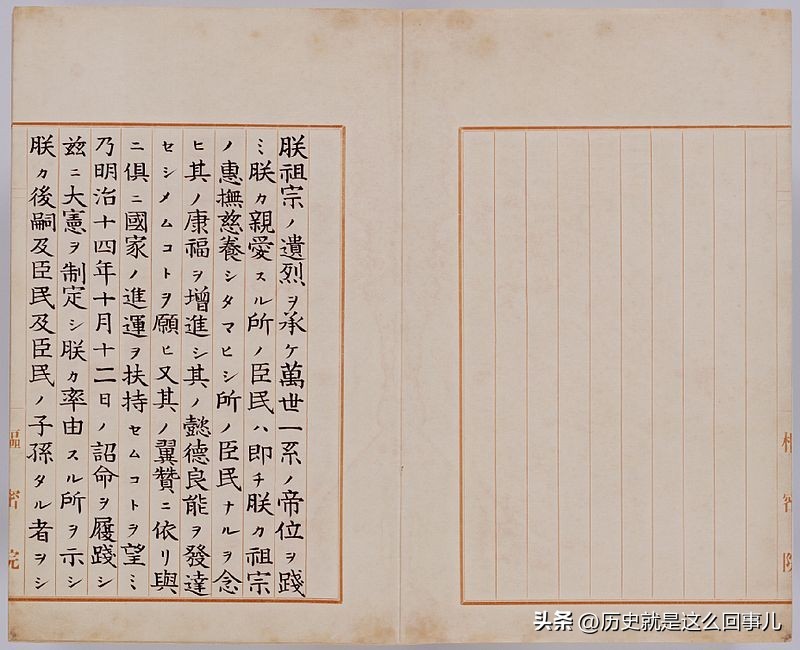 朕祖宗ノ遺烈ヲ承ケ萬世一系ノ帝位ヲ踐
ミ朕カ親愛スル所ノ臣民ハ即チ朕カ祖宗
ノ惠撫慈養シタマヒシ所ノ臣民ナルヲ念
ヒ其ノ康福ヲ增進シ其ノ懿德良能ヲ發達
セシメムコトヲ願ヒ又其ノ翼贊ニ依リ與
ニ俱ニ國家ノ進運ヲ扶持セムコトヲ望ミ
乃明治十四年十月十二日ノ詔命ヲ履踐シ
玆ニ大憲ヲ制定シ朕カ率由スル所ヲ示シ
朕カ後嗣及臣民及臣民ノ子孫タル者ヲシ
樞密院
头条 @历史就是这么回事儿